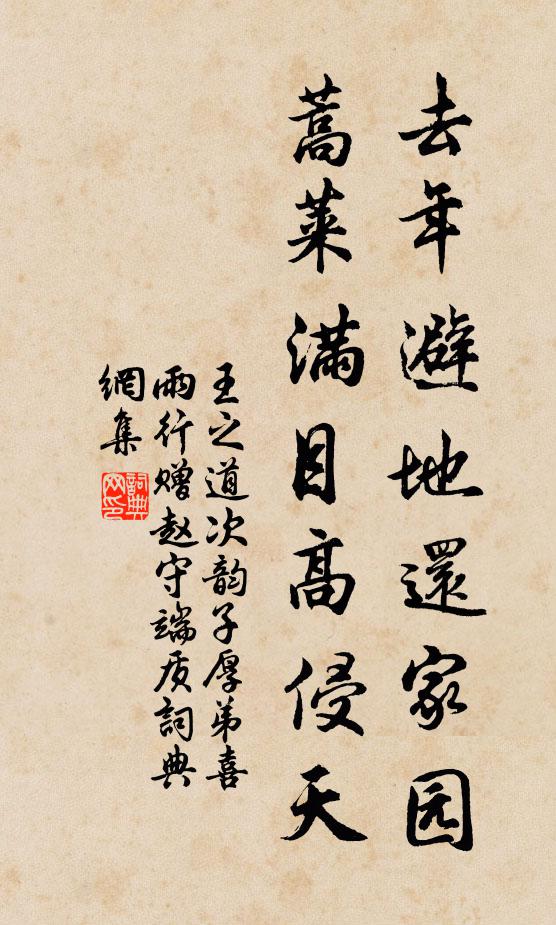 去年避地還家园
蒿莱滿目高侵天
王之道次韵子厚弟喜
雨行赠赵守端质詞典
網集
詞典
网印